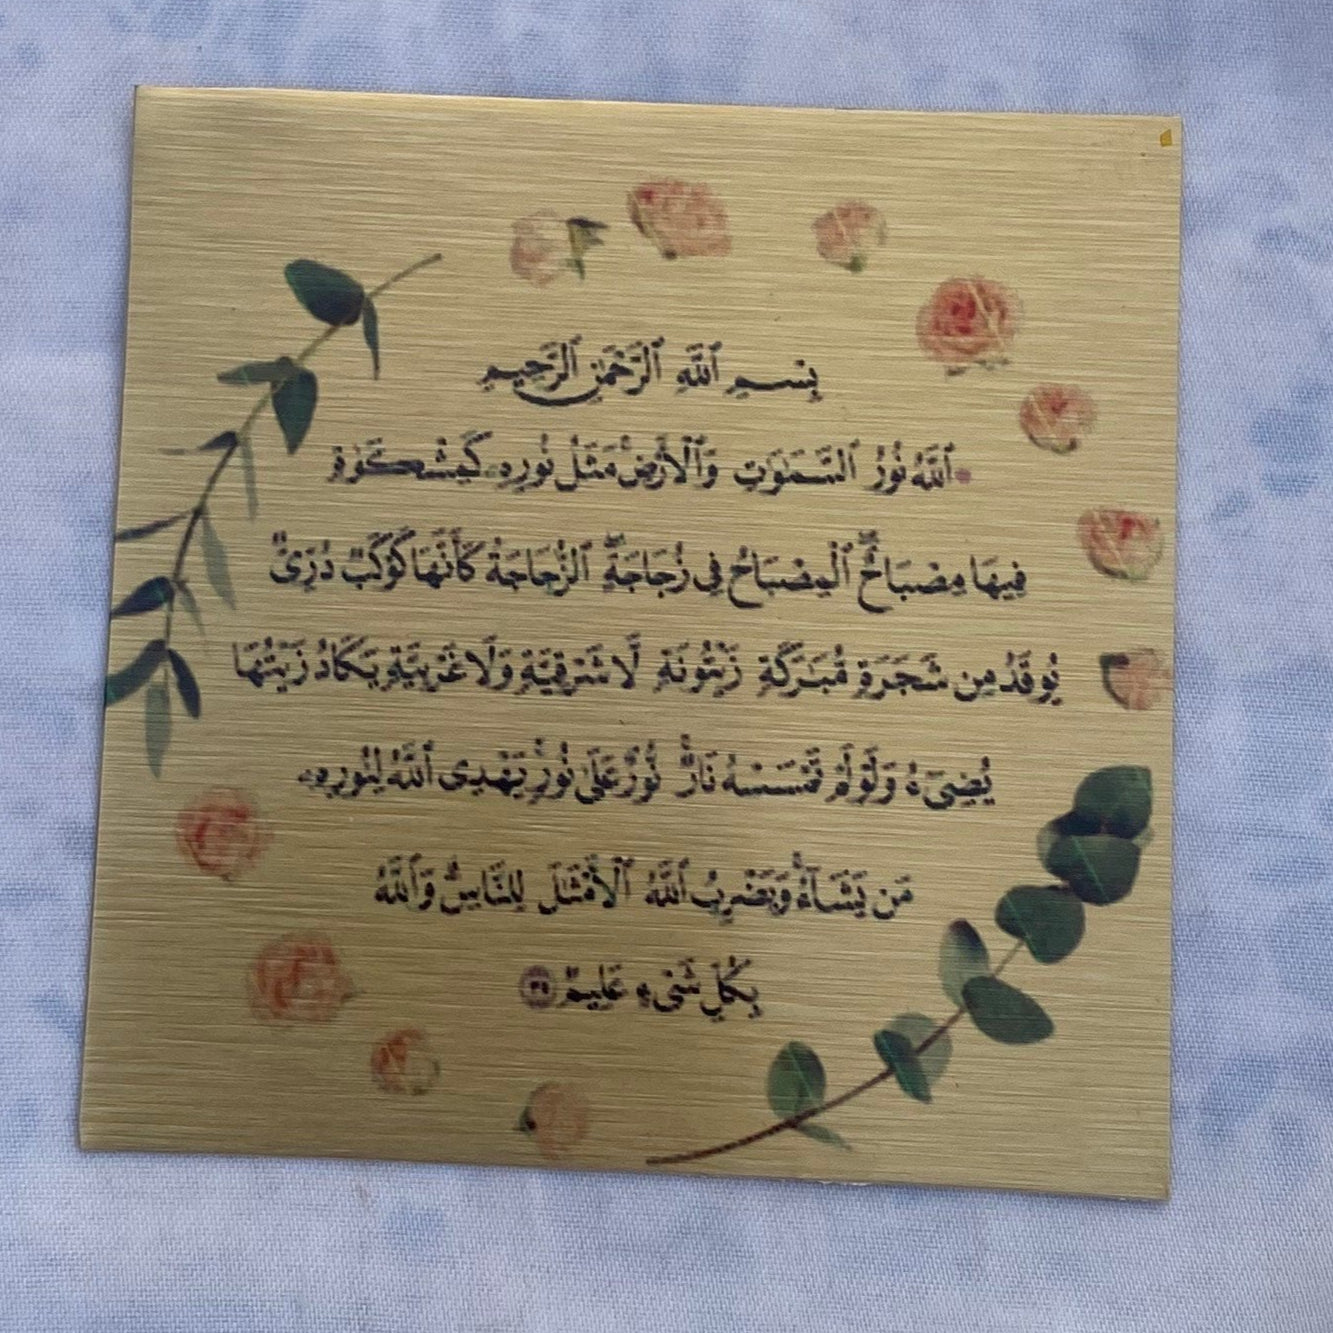 بِسْمِ ٱللَّهِ ٱلرَّحْمَٰنِ ٱلرَّحِيمِ
ٱللَّهُ نُورُ ٱلسَّمَٰوَٰتِ وَٱلْأَرْضِ ۚ مَثَلُ نُورِهِۦ كَمِشْكَوٰةٍ
فِيهَا مِصْبَاحٌ ۖ ٱلْمِصْبَاحُ فِى زُجَاجَةٍ ۖ ٱلزُّجَاجَةُ كَأَنَّهَا كَوْكَبٌ دُرِّىٌّ
يُوقَدُ مِن شَجَرَةٍ مُّبَٰرَكَةٍ زَيْتُونَةٍ لَّا شَرْقِيَّةٍ وَلَا غَرْبِيَّةٍ يَكَادُ زَيْتُهَا
يُضِىٓءُ وَلَوْ لَمْ تَمْسَسْهُ نَارٌ ۚ نُّورٌ عَلَىٰ نُورٍ ۗ يَهْدِى ٱللَّهُ لِنُورِهِۦ
مَن يَشَآءُ ۚ وَيَضْرِبُ ٱللَّهُ ٱلْأَمْثَٰلَ لِلنَّاسِ ۗ وَٱللَّهُ
بِكُلِّ شَىْءٍ عَلِيمٌ ٣٥